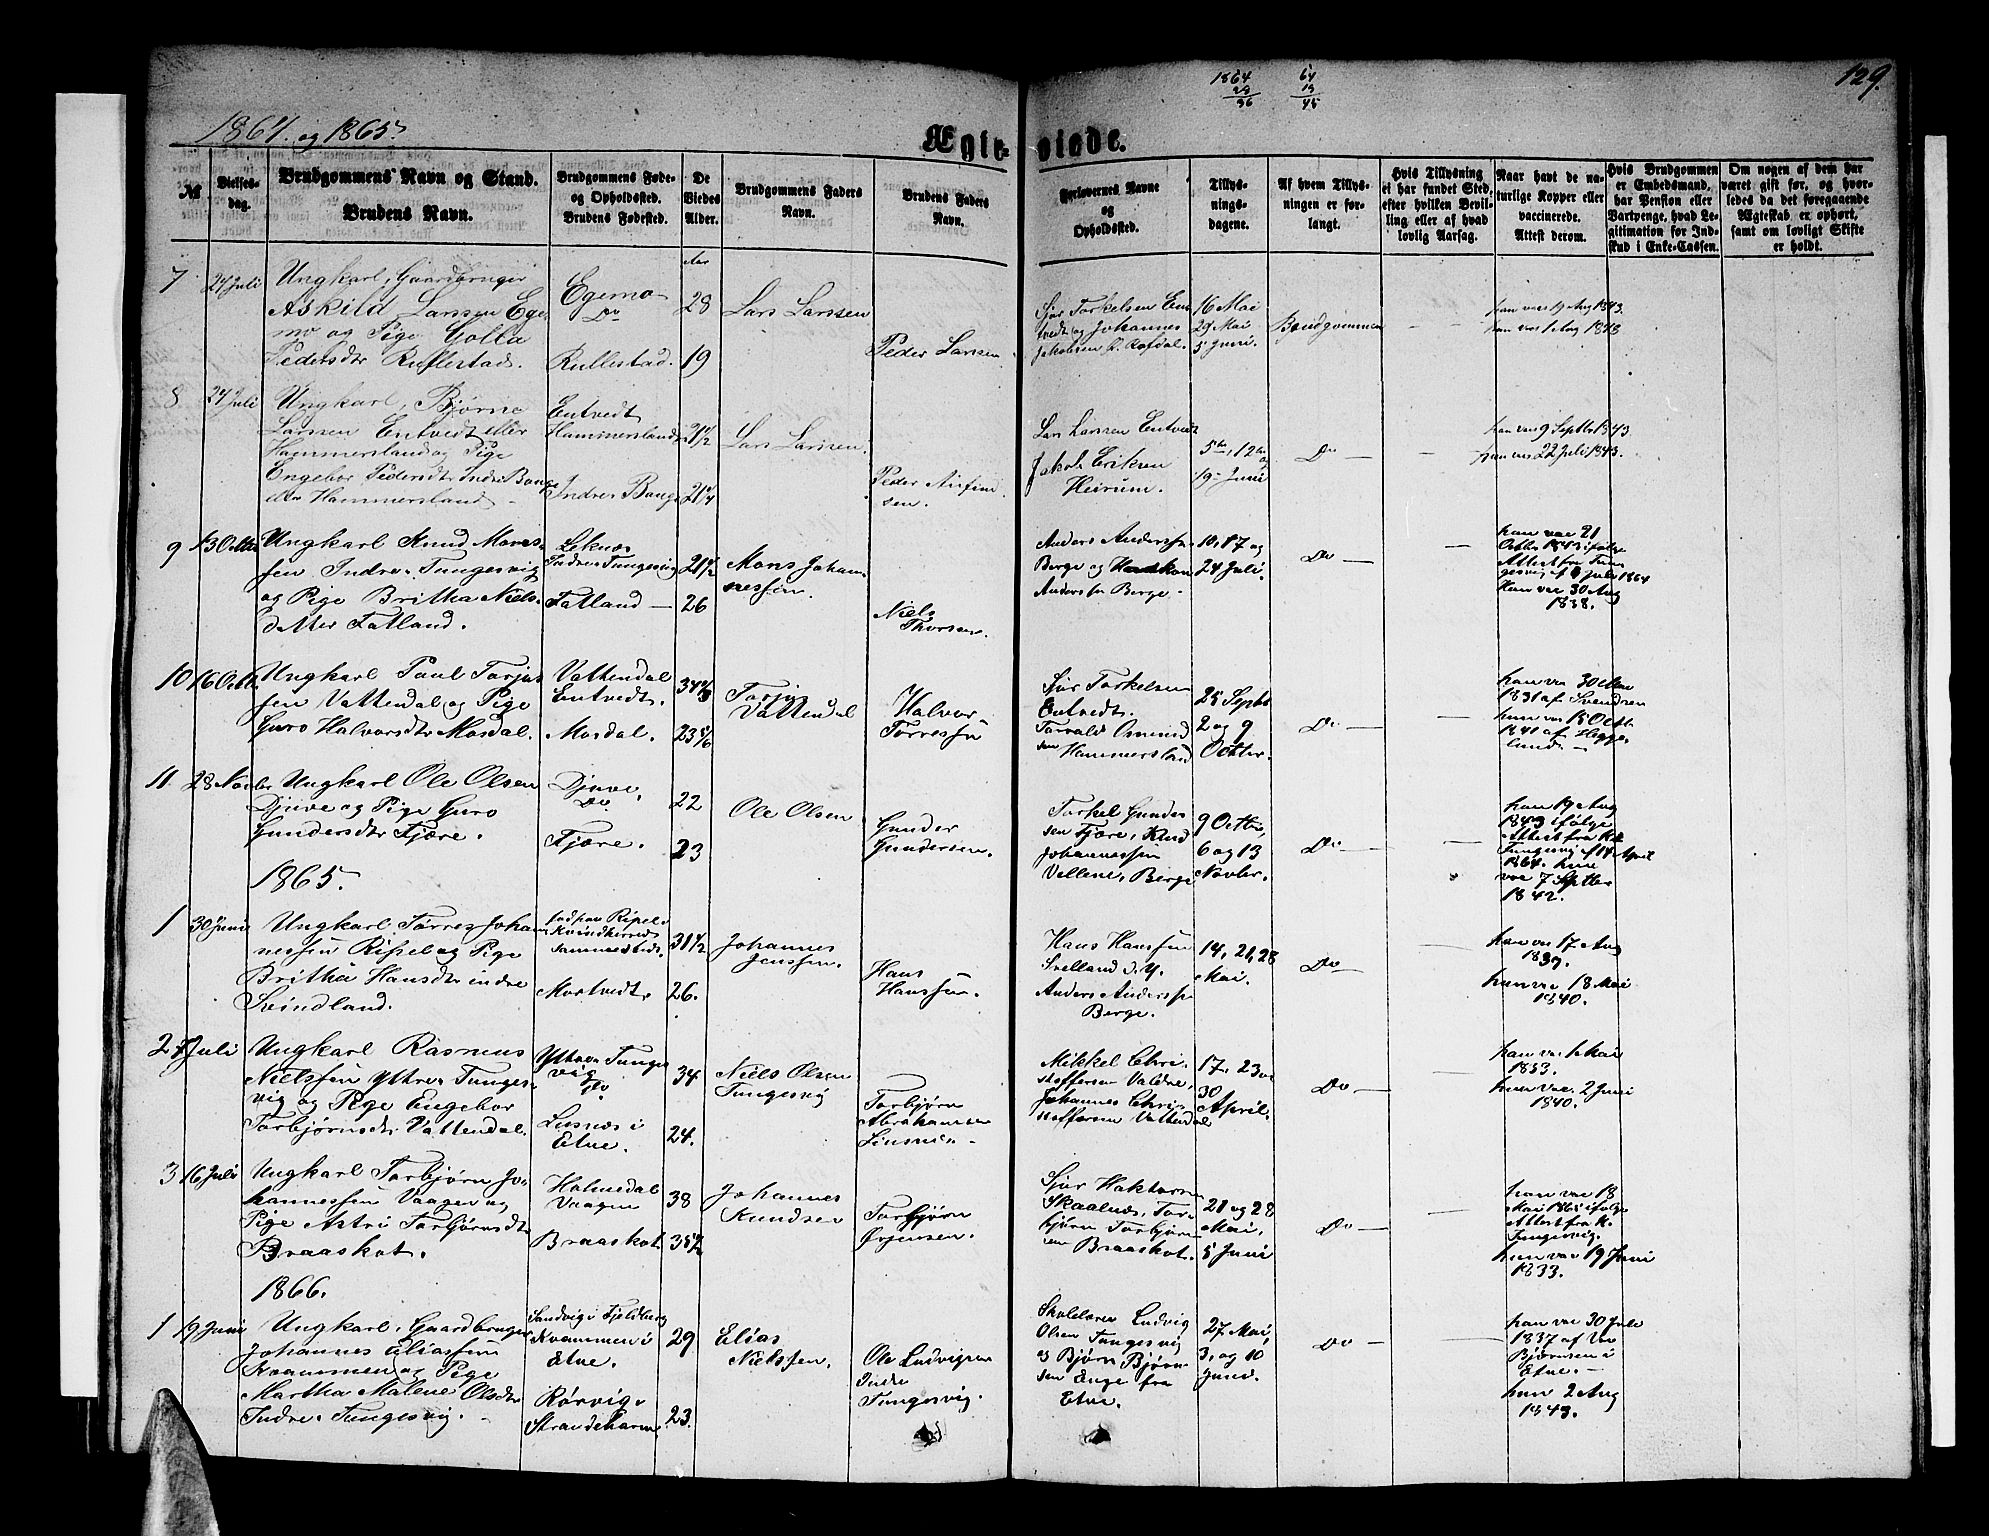 129.
1864
28
36
64
19
45
1864. og 1865.
Ægteviede.
№
Vielses-
dag.
Brudgommens Navn og Stand.
Brudens Navn.
Brudgommens Føde-
og Opholdssted.
Brudens Fødested.
De
Viedes
Alder.
Brudgommens Faders
Navn.
Brudens Faders
Navn.
Forlovernes Navne
og
Opholdssted.
Tillys-
nings-
dagene.
Af hvem Tillys-
ningen er for-
langt.
Hvis Tillysning
ei har fundet Sted,
efter hvilken Bevil-
ling eller af hvad
lovlig Aarsag.
Naar havt de na-
turlige Kopper eller
vaccinerede.
Attest derom.
Hvis Brudgommen
er Embedsmand,
har Pension eller
Vartpenge, hvad Le-
gitimation for Ind-
skud i Enke-Cassen.
Om nogen af dem har
været gift før, og hvor-
ledes da det foregaaende
Ægteskab er ophørt,
samt om lovligt Skifte
er holdt.
7
24 Juli
Ungkarl, Gaardbruger
Askild Larssen Ege-
mo og Pige Golla
Pedersdtr Rullestad.
Egemo
Do
Rullestad.
Aar
28
19
Lars Larssen
Peder Larssen.
Sjur Torkelsen Ent-
vedt og Johannes
Jakobsen Ø. Rafdal.
16 Mai
29 Mai
5 Juni.
Brudgommen
han vac 19 Aug 1843.
hun vac 1 Aug 1848
8
24 Juli
Ungkarl, Bjørne
Larsen Entvedt eller
Hammersland og Pige
Engebor Pedersdtr Indre Bauge
eller Hammersland
Entvedt
Hammersland
Indre Bauge
21 1/2
21 1/4
Lars Larssen.
Peder Anfin-
sen.
Lars Larssen Entvedt
Jakob Eriksen
Heirum.
5te, 12te og
19 Juni
Do
han vac 9 Septbr 1843.
hun vac 22 Juli 1843.
9
13 Octbr
Ungkarl Knud Mons-
sen Indre Tungesvig
og Pige Britha Niels-
datter Fatland.
Leknæs
Indre Tungesvig
Fatland
21 1/2
26
Mons Johan-
nessen.
Niels
Thorsen.
Anders Anderssen
Berge og Haakon
Anderssen Berge.
10, 17 og
24 Juli.
Do
han vac 21
Octbr 1843 ifølge
Attest fra Tun-
gesvig af Juli 1864
Hun vac 30 Aug
1838.
10
16 Octb.
Ungkarl Paul Torjus-
sen Vattendal og Pige
Guro Halvorsdtr Mosdal.
Vattendal
Entvedt.
Mosdal.
34
23 5/6
Torjus
Vattendal
Halvor
Torressen
Sjur Torkelsen
Entvedt.
Torvald Omund-
sen Hammersland
25 Septb
2 og 9
Octbr.
Do
han vac 30 Mai
1831 af Svendsen
hun vac 15 Octb.
1841 af Hegge-
lund.
11.
28 Novbr
Ungkarl Ole Olsen
Djuve og Pige Guro
Gundersdtr Fjære.
Djuve.
Do
Fjære.
22
23
Ole Olsen
Gunder
Gundersen.
Torkel Gunder-
sen Fjære, Knud
Johannessen
Vellene, Berge
9 Octbr,
6 og 13
Novbr.
Do
han 19 Aug
1843 ifølge
Attest fra
Tungesvig af 14 April
1864. hun
vac 7 Septbr
1842.
1865.
1
30 Juni
Ungkarl Torres Johan-
nessen Ripel og Pige
Britha Hansdtr indre
Svindland.
Ripel i
Kvindherred
sammesteds.
Mortvedt
31 1/2
26.
Johannes
Jenssen.
Hans
Hanssen.
Hans Hanssen
Svelland d.y.
Anders Anderssen
Berge.
14, 21, 28
Mai.
Do
han vac 17 Aug
1839.
hun vac 18 Mai
1840.
2
7 Juli
Ungkarl Rasmus
Nielssen Ythre Tunges-
vig og Pige Engebor
Torbjørnsdtr Vattendal.
Ythre Tunges-
vig
Do
Lusnæs i
Etne.
34.
24.
Niels Olsen
Tungesvig
Torbjørn
Abrahamsen
Lusnæs.
Mikkel Chri-
stoffersen Valdre,
Johannes Chri-
stoffersen Vattendal
17, 23 og
30
April.
Do
han vac 1 Mai
1833.
hun vac. 2 Juni
1840.
3
16 Juli
Ungkarl Torbjørn Jo-
hannessen Vaagen og
Pige Astri Torbjørnsdtr
Braaskot.
Holmedal
Vaagen
Braaskot.
38
35 1/2
Johannes
Knudsen
Torbjørn
Ørjensen.
Sjur Haktorsen
Skaalnæs, Tor-
bjørn Torbjørn-
sen Braaskot.
21 og 28
Mai,
5 Juni
Do
han vac 18
Mai 1865 ifølge
Attest fra K.
Tungesvig.
hun vac 19 Juni
1833.
1866.
1
19 Juni
Ungkarl, Gaardbruger
Johannes Eliassen
Kvammen og Pige
Martha Malene Olsdtr
Indre Tungesvig.
Sandvig i Fjeldberg
Kvammen i
Etne.
Rørvig
Strandebarm
29
23.
Elias
Nielssen.
Ole Ludvigsen
Indre
Tungesvig.
Skolelærer Ludvig
Olsen Tungesvig
og Bjørn Bjørn-
sen Enge fra
Etne.
27. Mai,
3. og 10
Juni.
Do
han vac 30 Juli
1837 af
Bjørnsen i
Etne.
hun 2 Aug
1843.